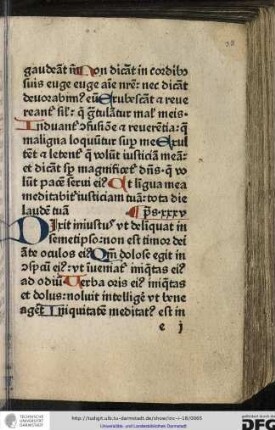 38
gaudeāt m̄ Non dicāt in cordibꝰ
suis euge euge aīe nr̄e: nec dicāt
deuorabimꝰ eū Erubescāt ⁊ reue
reant᷑ sil᷑: q̄ ḡtulāt᷑ur mal᷑ meis.
Induant᷑ ↄfusiōe ⁊ reuerētia: q̄
maligna loquūt᷑ sup̄ me Exul
tēt ⁊ letent᷑ q̄ volūt iusticiā meā: ⁊
et dicāt sp̄ magnificet᷑ dn̄s. q̄ vo
lūt pacē serui eiꝰ Et ligua mea
meditabit᷑ iusticiam tuā: tota die
laudē tuā ps. xxxv
Dixit iniustus vt deliquat in
semetipso: non est timor dei
āte oculos eiꝰ Qm̄ dolose egit in
ↄspcū eiꝰ: vt īueniat᷑ iniq̄tas eiꝰ
ad odiū Uerba oris eiꝰ iniq̄tas
et dolus: noluit intelligē vt bene
agēt Iniquitatē meditatꝰ est in
e j
TECHNISCHE
UNIVERSITÄT
DARMSTADT
http://tudigit.ulb.tu-darmstadt.de/show/inc-i-18/0085
Universitäts- und Landesbibliothek Darmstadt
gefördert durch die
DFG